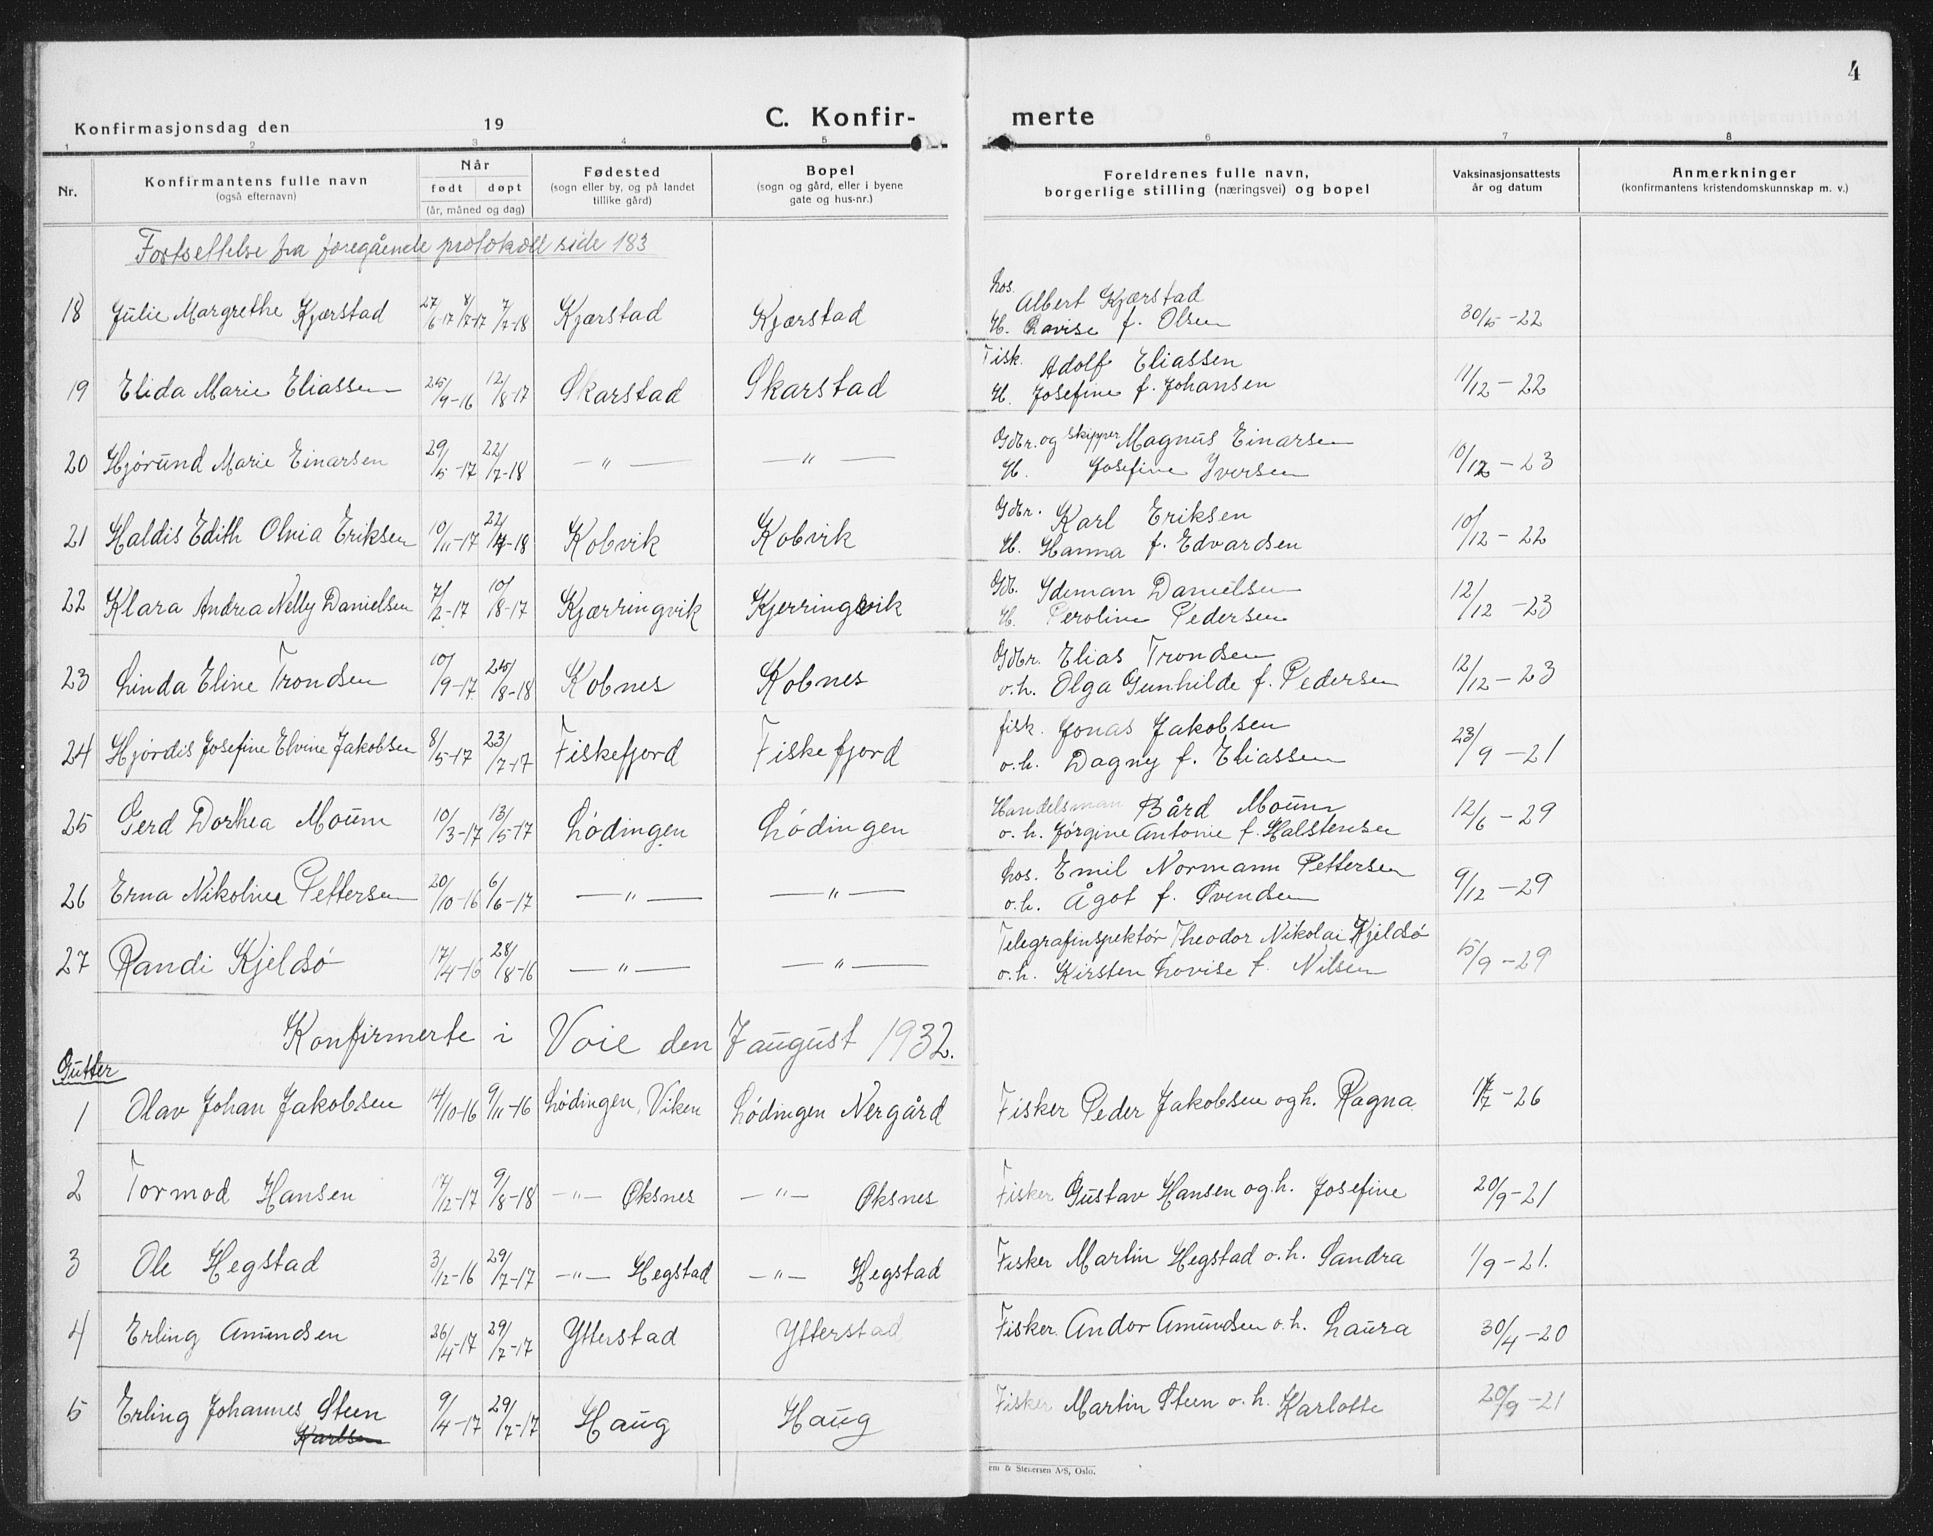 4
Konfirmasjonsdag den 19 C. Konfir- merte
1 2 3 4 5 6 7 8
Nr. Konfirmantens fulle navn (også efternavn) Når født døpt (år, måned og dag) Fødested (sogn eller by, og på landet tillike gård) Bopel (sogn og gård, eller i byene gate og hus-nr.) Foreldrenes fulle navn, borgerlige stilling (næringsvei) og bopel Vaksinasjonsattests år og datum Anmerkninger (konfirmantens kristendomskunnskap m. v.)
Fortsettelse fra foregående protokoll side 183
18 Julie Margrethe Kjærstad 27/6-17 8/7-17 7/7-18 Kjærstad Kjærstad hos. Albert Kjærstad 30/5-22
H. Lovise f. Olsen
19 Elida Marie Eliassen 25/9-16 12/8-17 Skarstad Skarstad Fisk. Adolf Eliassen 11/12-22
H. Josefine f. Johansen
20 Hjørund Marie Einarsen 29/5-17 22/7-18 —"— —"— Gdbr. og skipper Magnus Einarsen 10/12-23
H. Josefine Iversen
21 Haldis Edith Olvia Eriksen 10/11-17 22/7-18 Kobvik Kobvik Gdbr. Karl Eriksen 10/12-22
H. Hanna f. Edvardsen
22 Klara Andrea Nelly Danielsen 7/2-17 10/8-17 Kjærringvik Kjerringvik Gdb. Ideman Danielsen 12/12-23
H. Peroline Pedersen
23 Linda Eline Trondsen 10/9-17 25/8-18 Kobnes Kobnes Gdbr. Elias Trondsen 12/12-23
o.h. Olga Gunhilde f. Pedersen
24 Hjørdis Josefine Elvine Jakobsen 8/5-17 23/7-17 Fiskefjord Fiskefjord fisk. Jonas Jakobsen 23/9-21
o.h. Dagny f. Eliassen
25 Gerd Dorthea Moum 10/3-17 13/5-17 Lødingen Lødingen Handelsman Bård Moum 12/6-29
o.h. Jørgine Antonie f. Halstensen
26 Erna Nikoline Pettersen 20/10-16 6/6-17 —"— —"— hos. Emil Normann Pettersen 9/12-29
o.h. Ågot f. Svendsen
27 Randi Kjeldsø 17/4-16 28/8-16 —"— —"— Telegrafinspektør Theodor Nikolai Kjeldsø 5/9-29
o.h. Kirsten Lovise f. Nilsen
Konfirmerte i Voie den 7 august 1932.
Gutter
1 Olav Johan Jakobsen 14/10-16 9/11-16 Lødingen, Viken Lødingen Nergård Fisker Peder Jakobsen og h. Ragna /7-26
2 Tormod Hansen 17/12-17 9/8-18 —"— Øksnes —"— Øksnes Fisker Gustav Hansen og h. Josefine 20/9-21
3 Ole Hegstad 3/12-16 29/7-17 —"— Hegstad —"— Hegstad Fisker Martin Hegstad o.h. Sandra 1/9-21.
4 Erling Amundsen 26/4-17 29/7-17 Ytterstad Ytterstad Fisker Andor Amundsen o.h. Laura 30/4-20
5 Erling Johannes Steen 9/4-17 29/7-17 Haug Haug Fisker Martin Steen o.h. Karlotte 20/9-21
Karlsen
em & Stenersen A/S, Oslo.